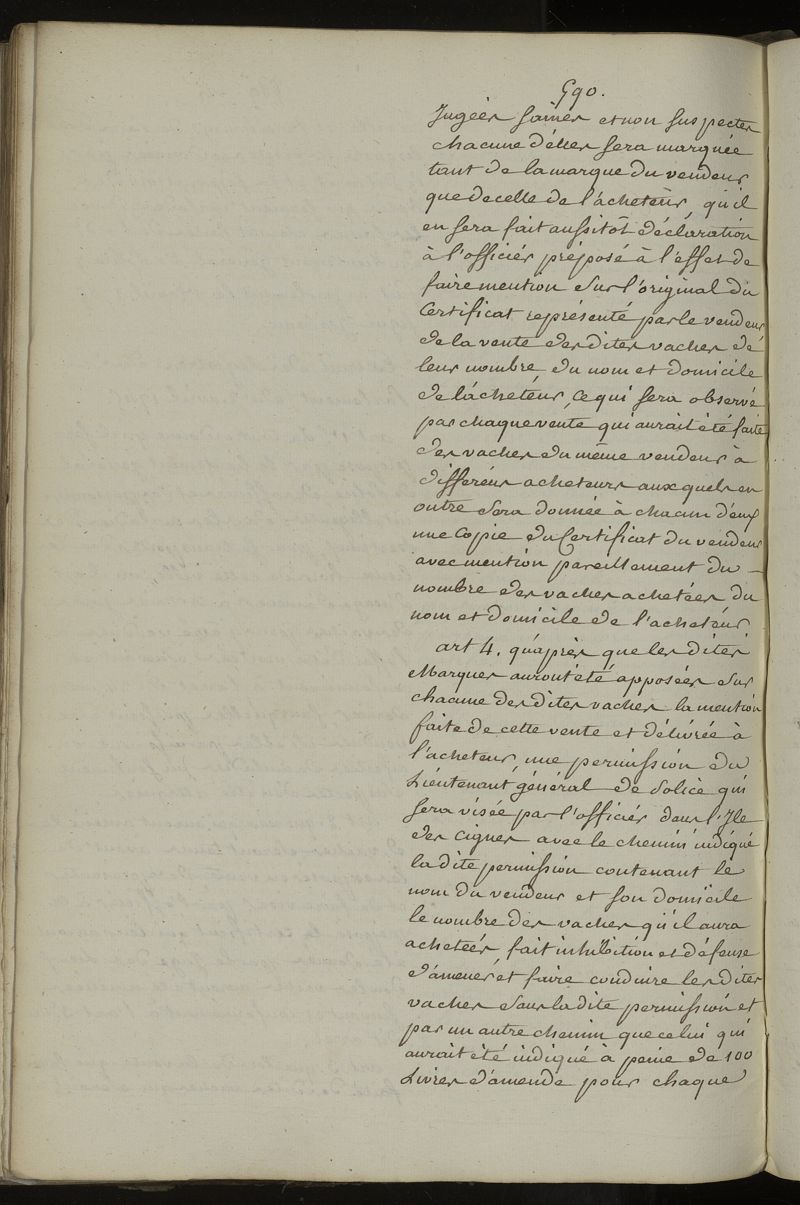 590.
Jugées saines et non suspectes
chacune d'elles sera marquée
tant de la marque du vendeur
que de celle de l'acheteur, qu'il
en sera fait aussitôt déclaration
à l'officier préposé à l'effet de
faire mention sur l'original du
Certificat représenté par le vendeur
de la vente des dites vaches de
leur nombre du nom et domicile
de l'acheteur, ce qui sera observé
par chaque vente qui aurait été faite
des vaches du même vendeur à
différens acheteurs auxquels en
outre sera donnée à chacun d'eux
une Copie du Certificat du vendeur
avec mention pareillement du —
nombre des vaches achetées du
nom et domicile de l'acheteur
art 4. qu'après que les dites
Marques auront été apposées sur
chacune des dites vaches la mention
faite de cette vente et délivrée à
l'acheteur, une permission du
Lieutenant général de Police qui
sera visée par l'officier dans l'Ile
des Cignes avec le chemin indiqué
la dite permission contenant le
nom du vendeur et son domicile
le nombre des vaches qu'il aura
achetées, fait inhibition et défense
d'amener et faire conduire les dites
vaches sans la dite permission et
par un autre chemin que celui qui
aurait été indiqué à peine de 100
Livres d'amende pour chaque